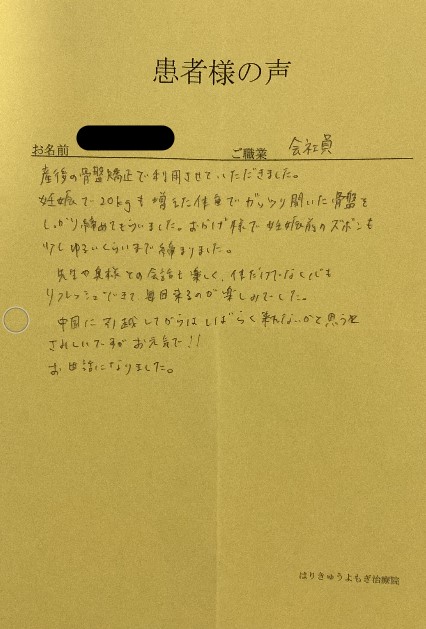 患者様の声
お名前
ご職業 会社員
産後の骨盤矯正で利用させていただきました。
妊娠で20kgも増えた体重でガッツリ開いた骨盤を
しっかり締めてもらいました。おかげ様で妊娠前のズボンも
少しゆるいくらいまで締まりました。
先生や奥様との会話も楽しく、体だけでなく心も
リフレッシュできて、毎回来るのが楽しみでした。
中国に引越してからはしばらく来れないかと思うと
さみしいですがお元気で!!
お世話になりました。
はりきゅうよもぎ治療院